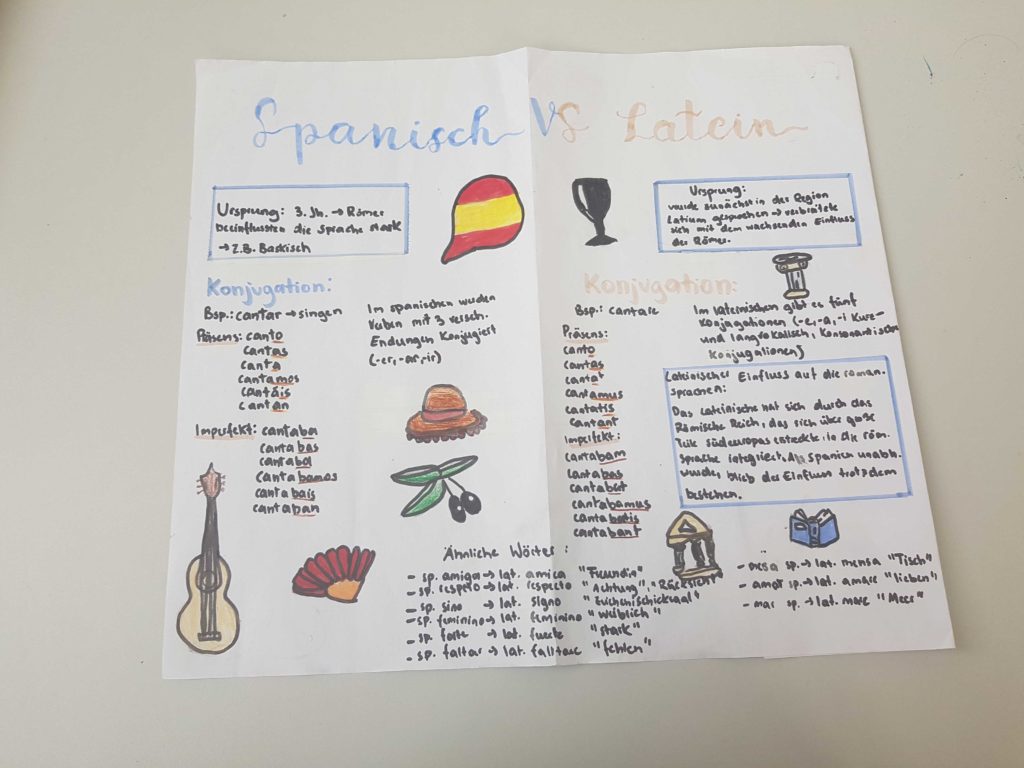 Spanisch VS Latein
Ursprung: 3. Jh. → Römer
beeinflussten die Sprache stark
→ z.B. Baskisch
Konjugation:
Bsp.: cantar → singen
Präsens: canto
cantas
canta
cantamos
cantáis
cantan
Imperfekt: cantaba
cantabas
cantaba
cantabamos
cantabais
cantaban
Im spanischen werden
Verben mit 3 versch.
Endungen konjugiert
(-er,-ar,-ir)
Ursprung:
wurde zunächst in der Region
Latium gesprochen → verbreitete
sich mit dem wachsenden Einfluss
der Römer.
Konjugation:
Bsp.: cantare
Präsens:
canto
cantas
cantat
cantamus
cantatis
cantant
Imperfekt:
cantabam
cantabas
cantabat
cantabamus
cantabatis
cantabant
Im lateinischen gibt es fünf
Konjugationen (-e,-a,-i Kurz-
und langvokalisch, Konsonantische
Konjugationen)
Lateinischer Einfluss auf die roman.
Sprachen:
Das Lateinische hat sich durch das
Römische Reich, das sich über große
Teile südeuropas in die röm.
Sprache integriert. Spanien unabh.
wurde, blieb der Einfluss trotzdem
bestehen.
Ähnliche Wörter:
- sp. amiga → lat. amica "Freundin"
- sp. respeto → lat. respecto "Achtung", "Rücksicht"
- sp. sino → lat. signo
- sp. feminino → lat. feminino "weiblich"
- sp. forte → lat. fuerte "stark"
- sp. faltar → lat. falltare "fehlen"
- mesa sp. → lat. mensa "Tisch"
- amar sp. → lat. amare "lieben"
- mar sp. → lat. mare "Meer"